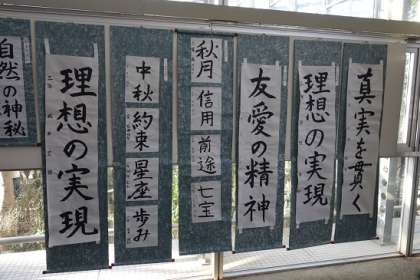 真実を貫く
理想の実現
友愛の精神
秋月
信用
前途
七宝
中秋
約束
星座
歩み
理想の実現
自然の神秘